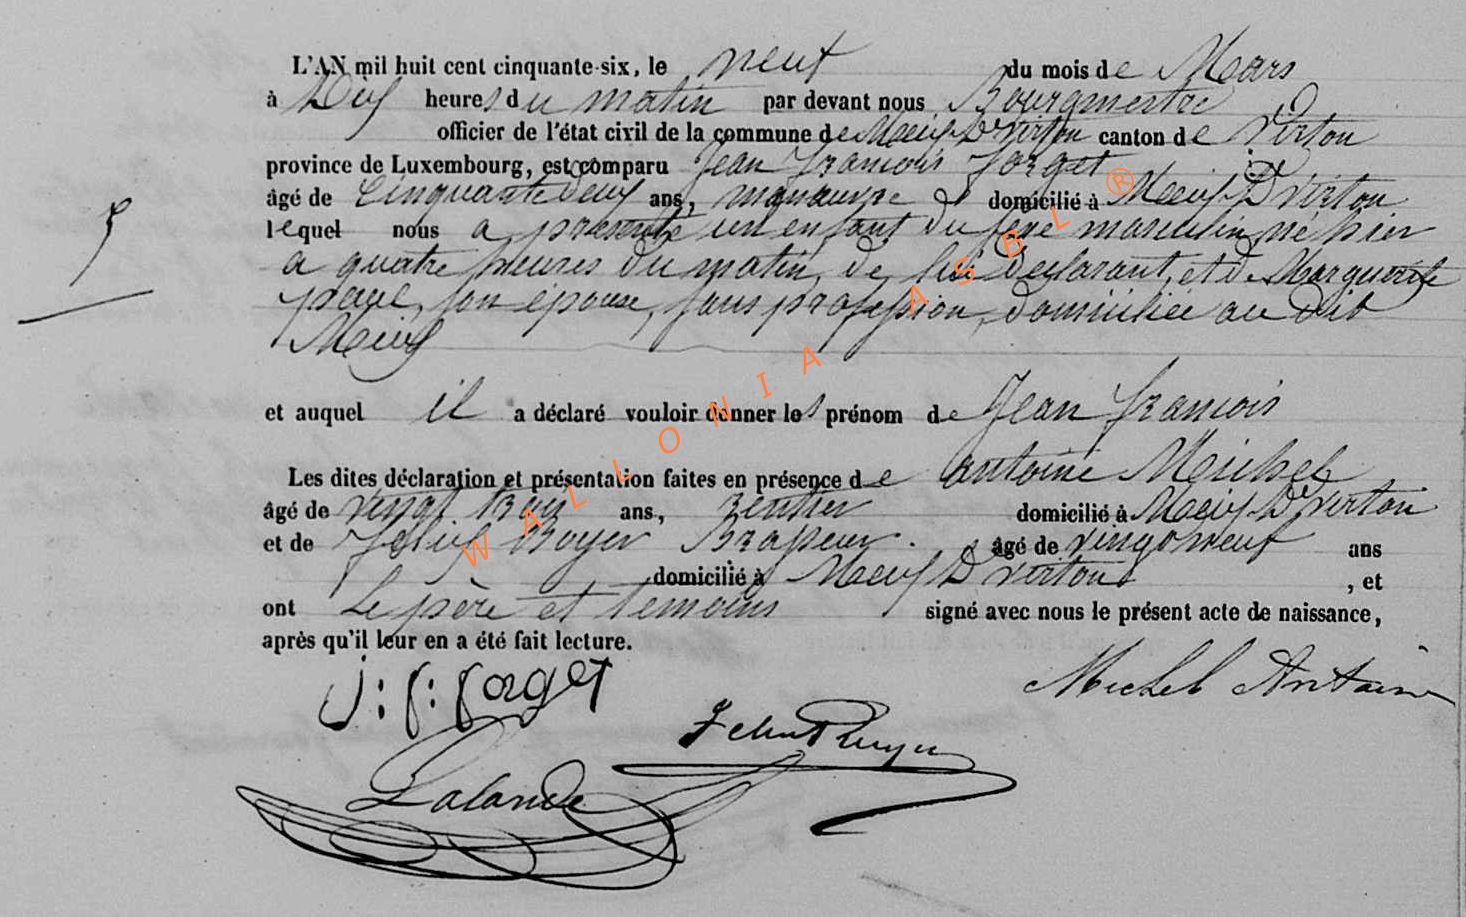 L'AN mil huit cent cinquante-six, le neuf du mois de Mars
à Dix heures du matin par devant nous Bourgmestre
officier de l'état civil de la commune de Meix Dt Virton canton de Virton
province de Luxembourg, est comparu Jean François Forget
âgé de Cinquante deux ans, manœuvre domicilié à Meix-Dt Virton
lequel nous a présenté un enfant du sexe masculin, né hier
a quatre heures du matin, de lui déclarant, et de Marguerite
son épouse, sans profession, domiciliée au dit
Meix
et auquel il a déclaré vouloir donner les prénom de Jean François
Les dites déclaration et présentation faites en présence de antoine Michel
âgé de vingt trois ans, rentier domicilié à Meix-Dt Virton
et de Boyer Brasseur. âgé de vingt neuf ans
domicilié à Meix Dt Virton , et
ont Le père et témoins signé avec nous le présent acte de naissance,
après qu'il leur en a été fait lecture.
Michel Antoine
J: f: forget
Lalande
WALLONIA ASBL ®